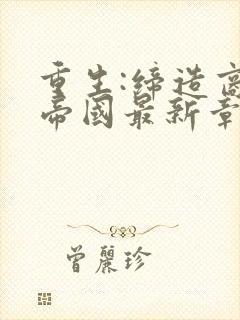 重生:缔造商
帝國最新章
曾麗珍